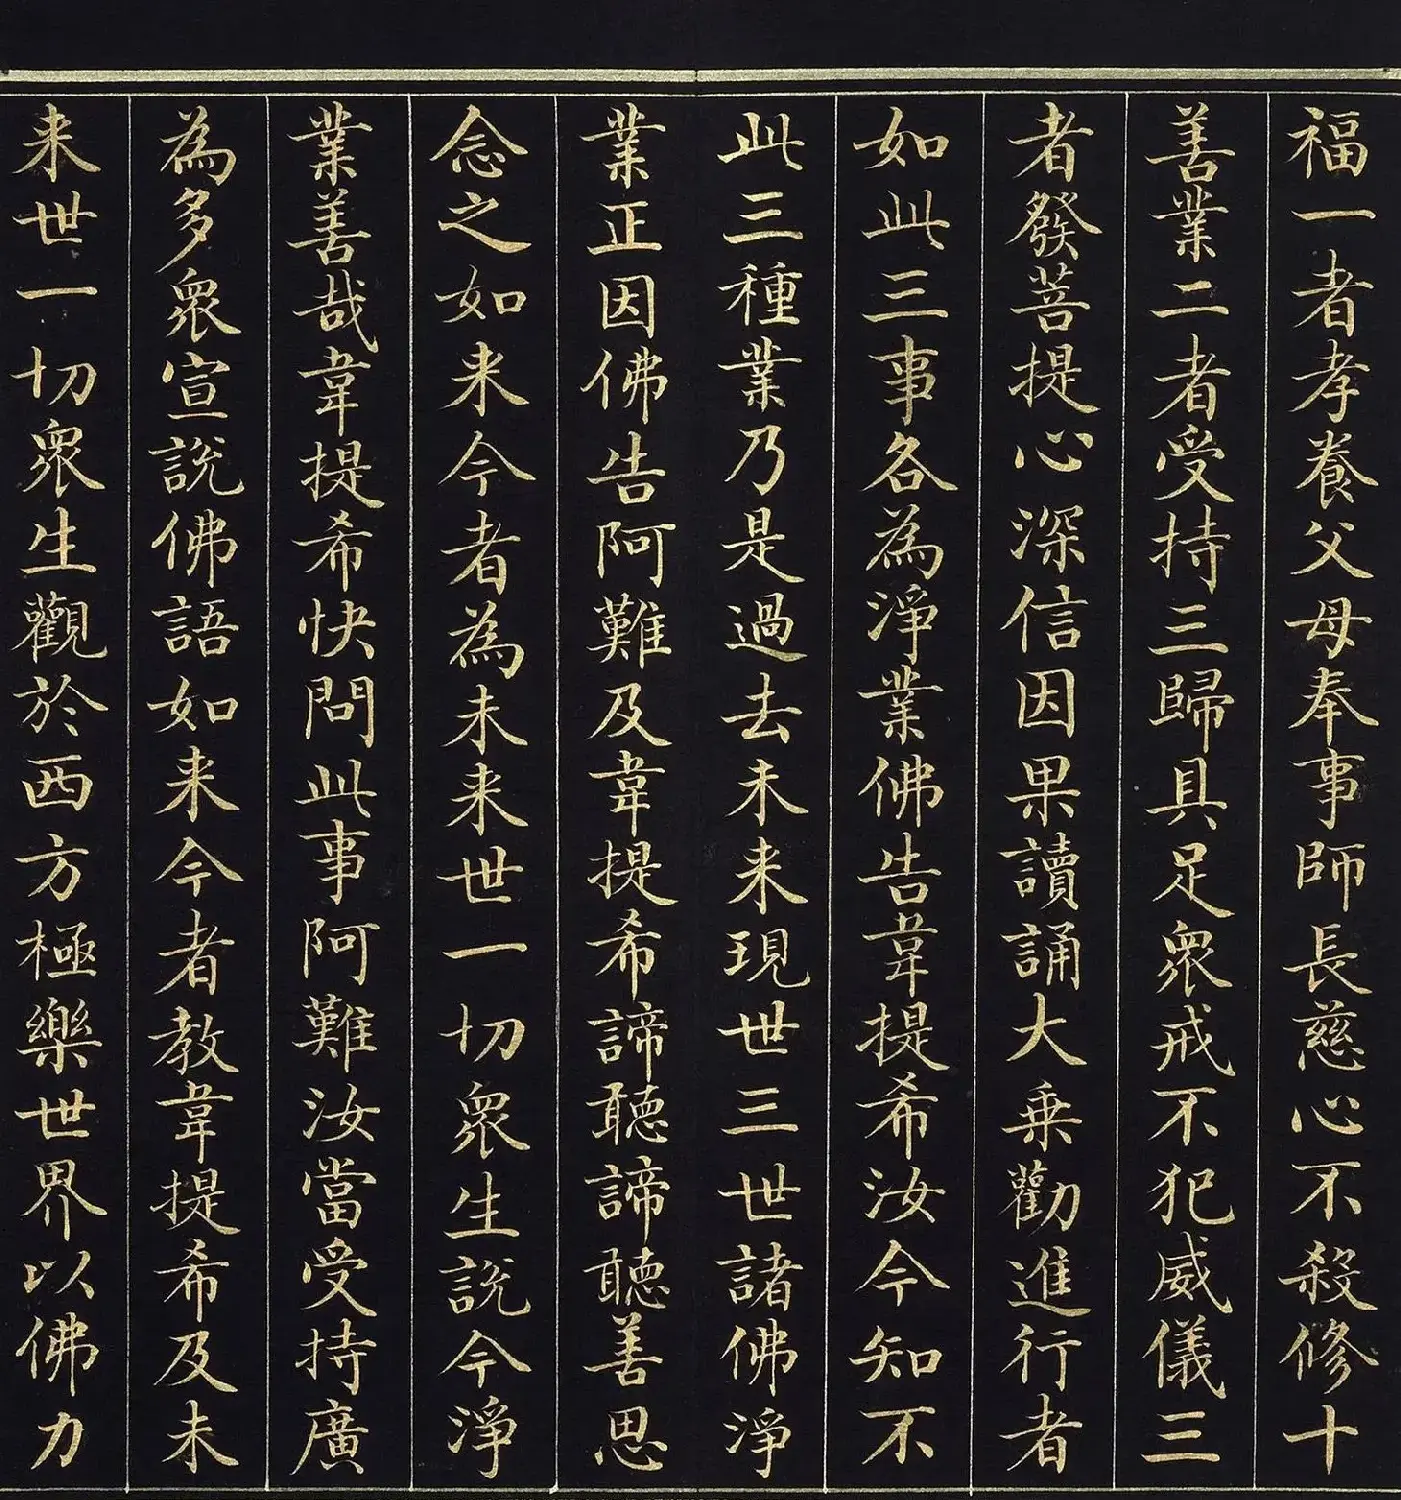 福一者孝養父母奉事師長慈心不殺修十
善業二者受持三歸具足衆戒不犯威儀三
者發菩提心深信因果讀誦大乗勸進行者
如此三事各為淨業佛告韋提希汝今知不
此三種業乃是過去未来現世三世諸佛淨
業正因佛告阿難及韋提希諦聽諦聽善思
念之如来今者為未来世一切衆生說今淨
業善哉韋提希快問此事阿難汝當受持廣
為多衆宣說佛語如来今者教韋提希及未
来世一切衆生觀於西方極樂世界以佛力